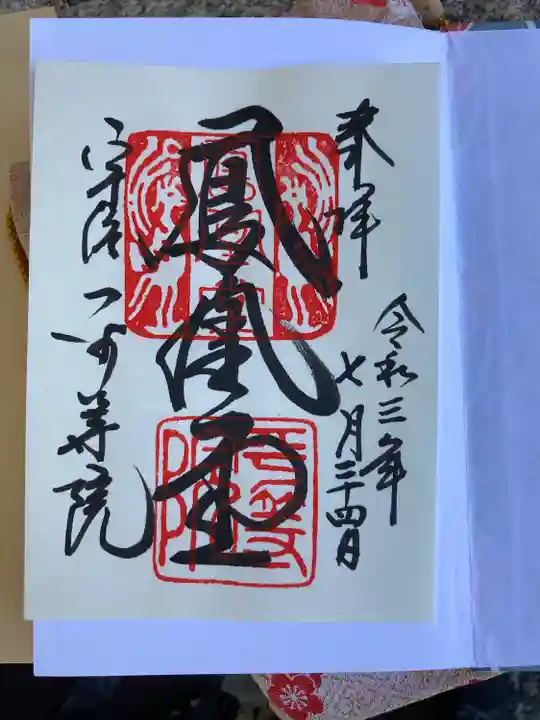 奉拝
令和三年
七月二十四日
鳳凰堂
宇治 平等院